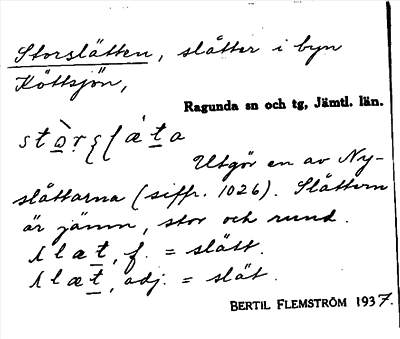 Storslätten, slåtter i byn
Köttsjön,
Ragunda sn och tg, Jämtl. län.
Utgör en av Ny-
slåttarna (siffr. 1026). Slåttern
är jämn, stor och rund.
slæt, f. = slått.
slæt, adj. = slät.
BERTIL FLEMSTRÖM 1937.